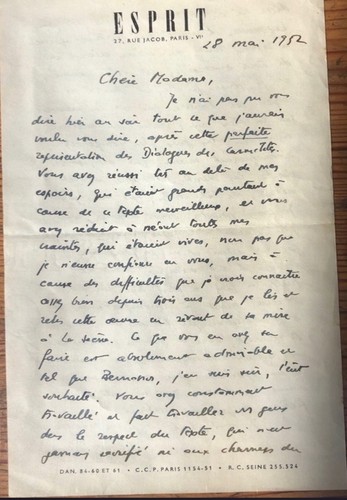 ESPRIT
27, RUE JACOB, PARIS - VIe
28 mai 1952
Chère Madame,
Je n'ai pas pu vous
dire hier au soir tout ce que j'aurais
voulu vous dire, après cette parfaite
représentation des Dialogues des Carmélites.
Vous avez réussi au delà de mes
espoirs, qui étaient grands pourtant à
cause de ce texte merveilleux, et vous
avez réduit à néant toutes mes
craintes, qui étaient vives, non pas que
je n'eusse confiance en vous, mais à
cause des difficultés que je crois connaître
assez bien depuis trois ans que je lis et
relis cette œuvre en rêvant de sa mise
à la scène. Ce que vous en avez su
faire est absolument admirable et
tel que Bernanos, j'en suis sûr, l'eût
souhaité. Vous avez constamment
travaillé et fait travailler vos gens
dans le respect du texte, qui n'est
jamais sacrifié ni aux charmes du
DAN. 84-60 ET 61 - C.C.P. PARIS 1154-51 - R.C. SEINE 255.524